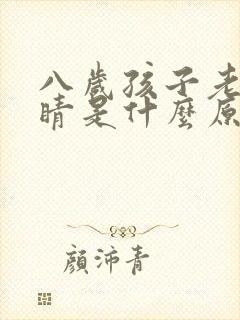 八歲孩子老
睛是什麼原
顏沛青